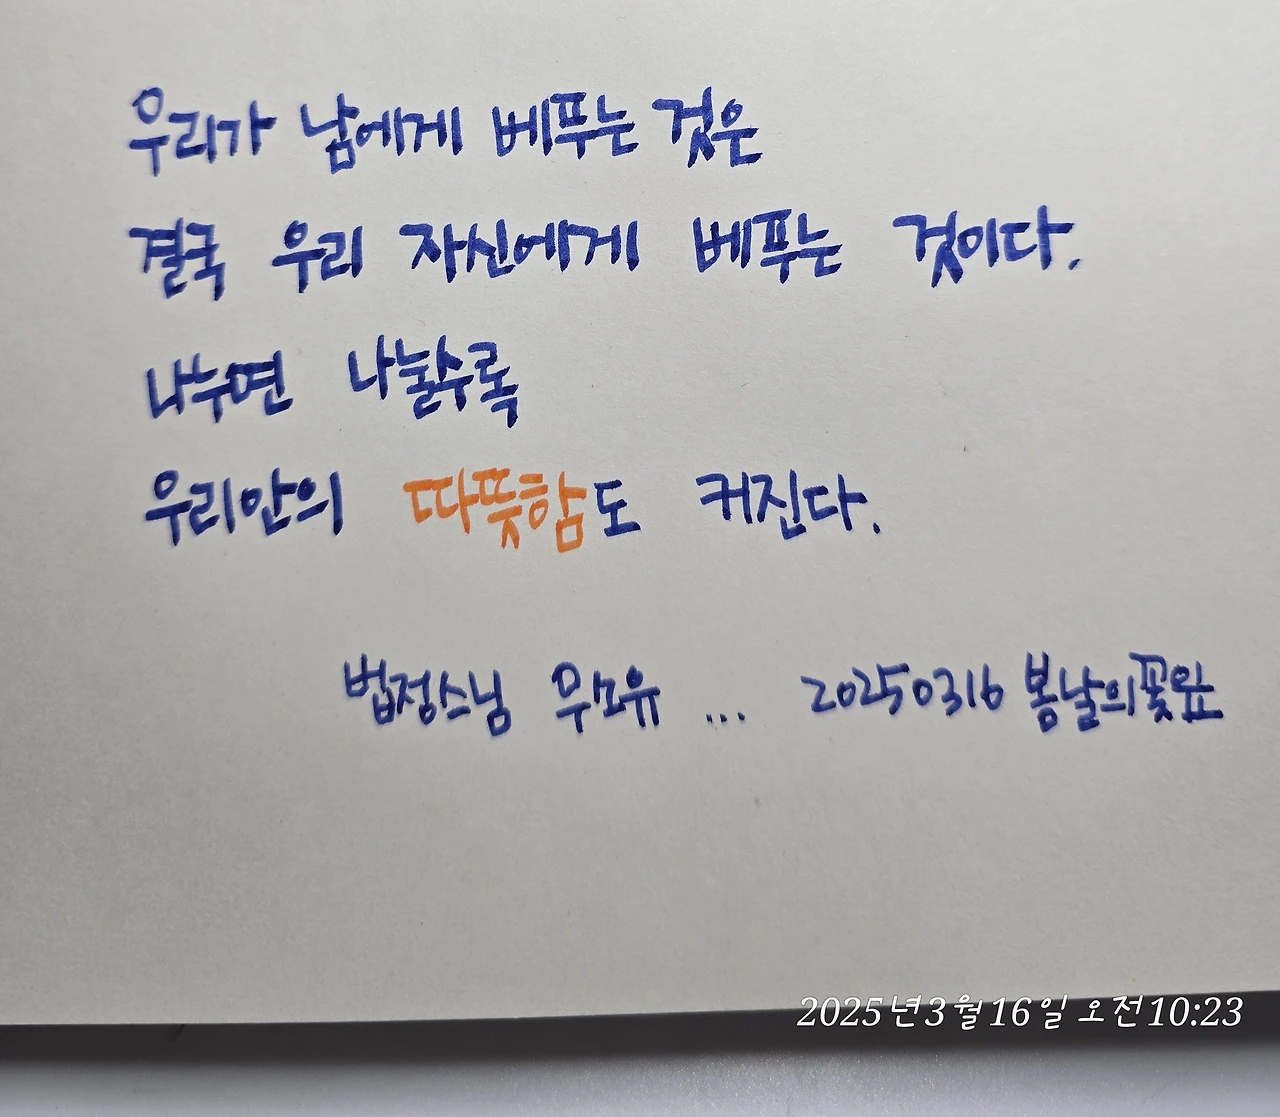 우리가 남에게 베푸는 것은
결국 우리 자신에게 베푸는 것이다.
나누면 나눌수록
우리안의 따뜻함도 커진다.
법정스님 무소유 ... 20250316 봄날의꽃
2025년 3월 16일 오전 10:23